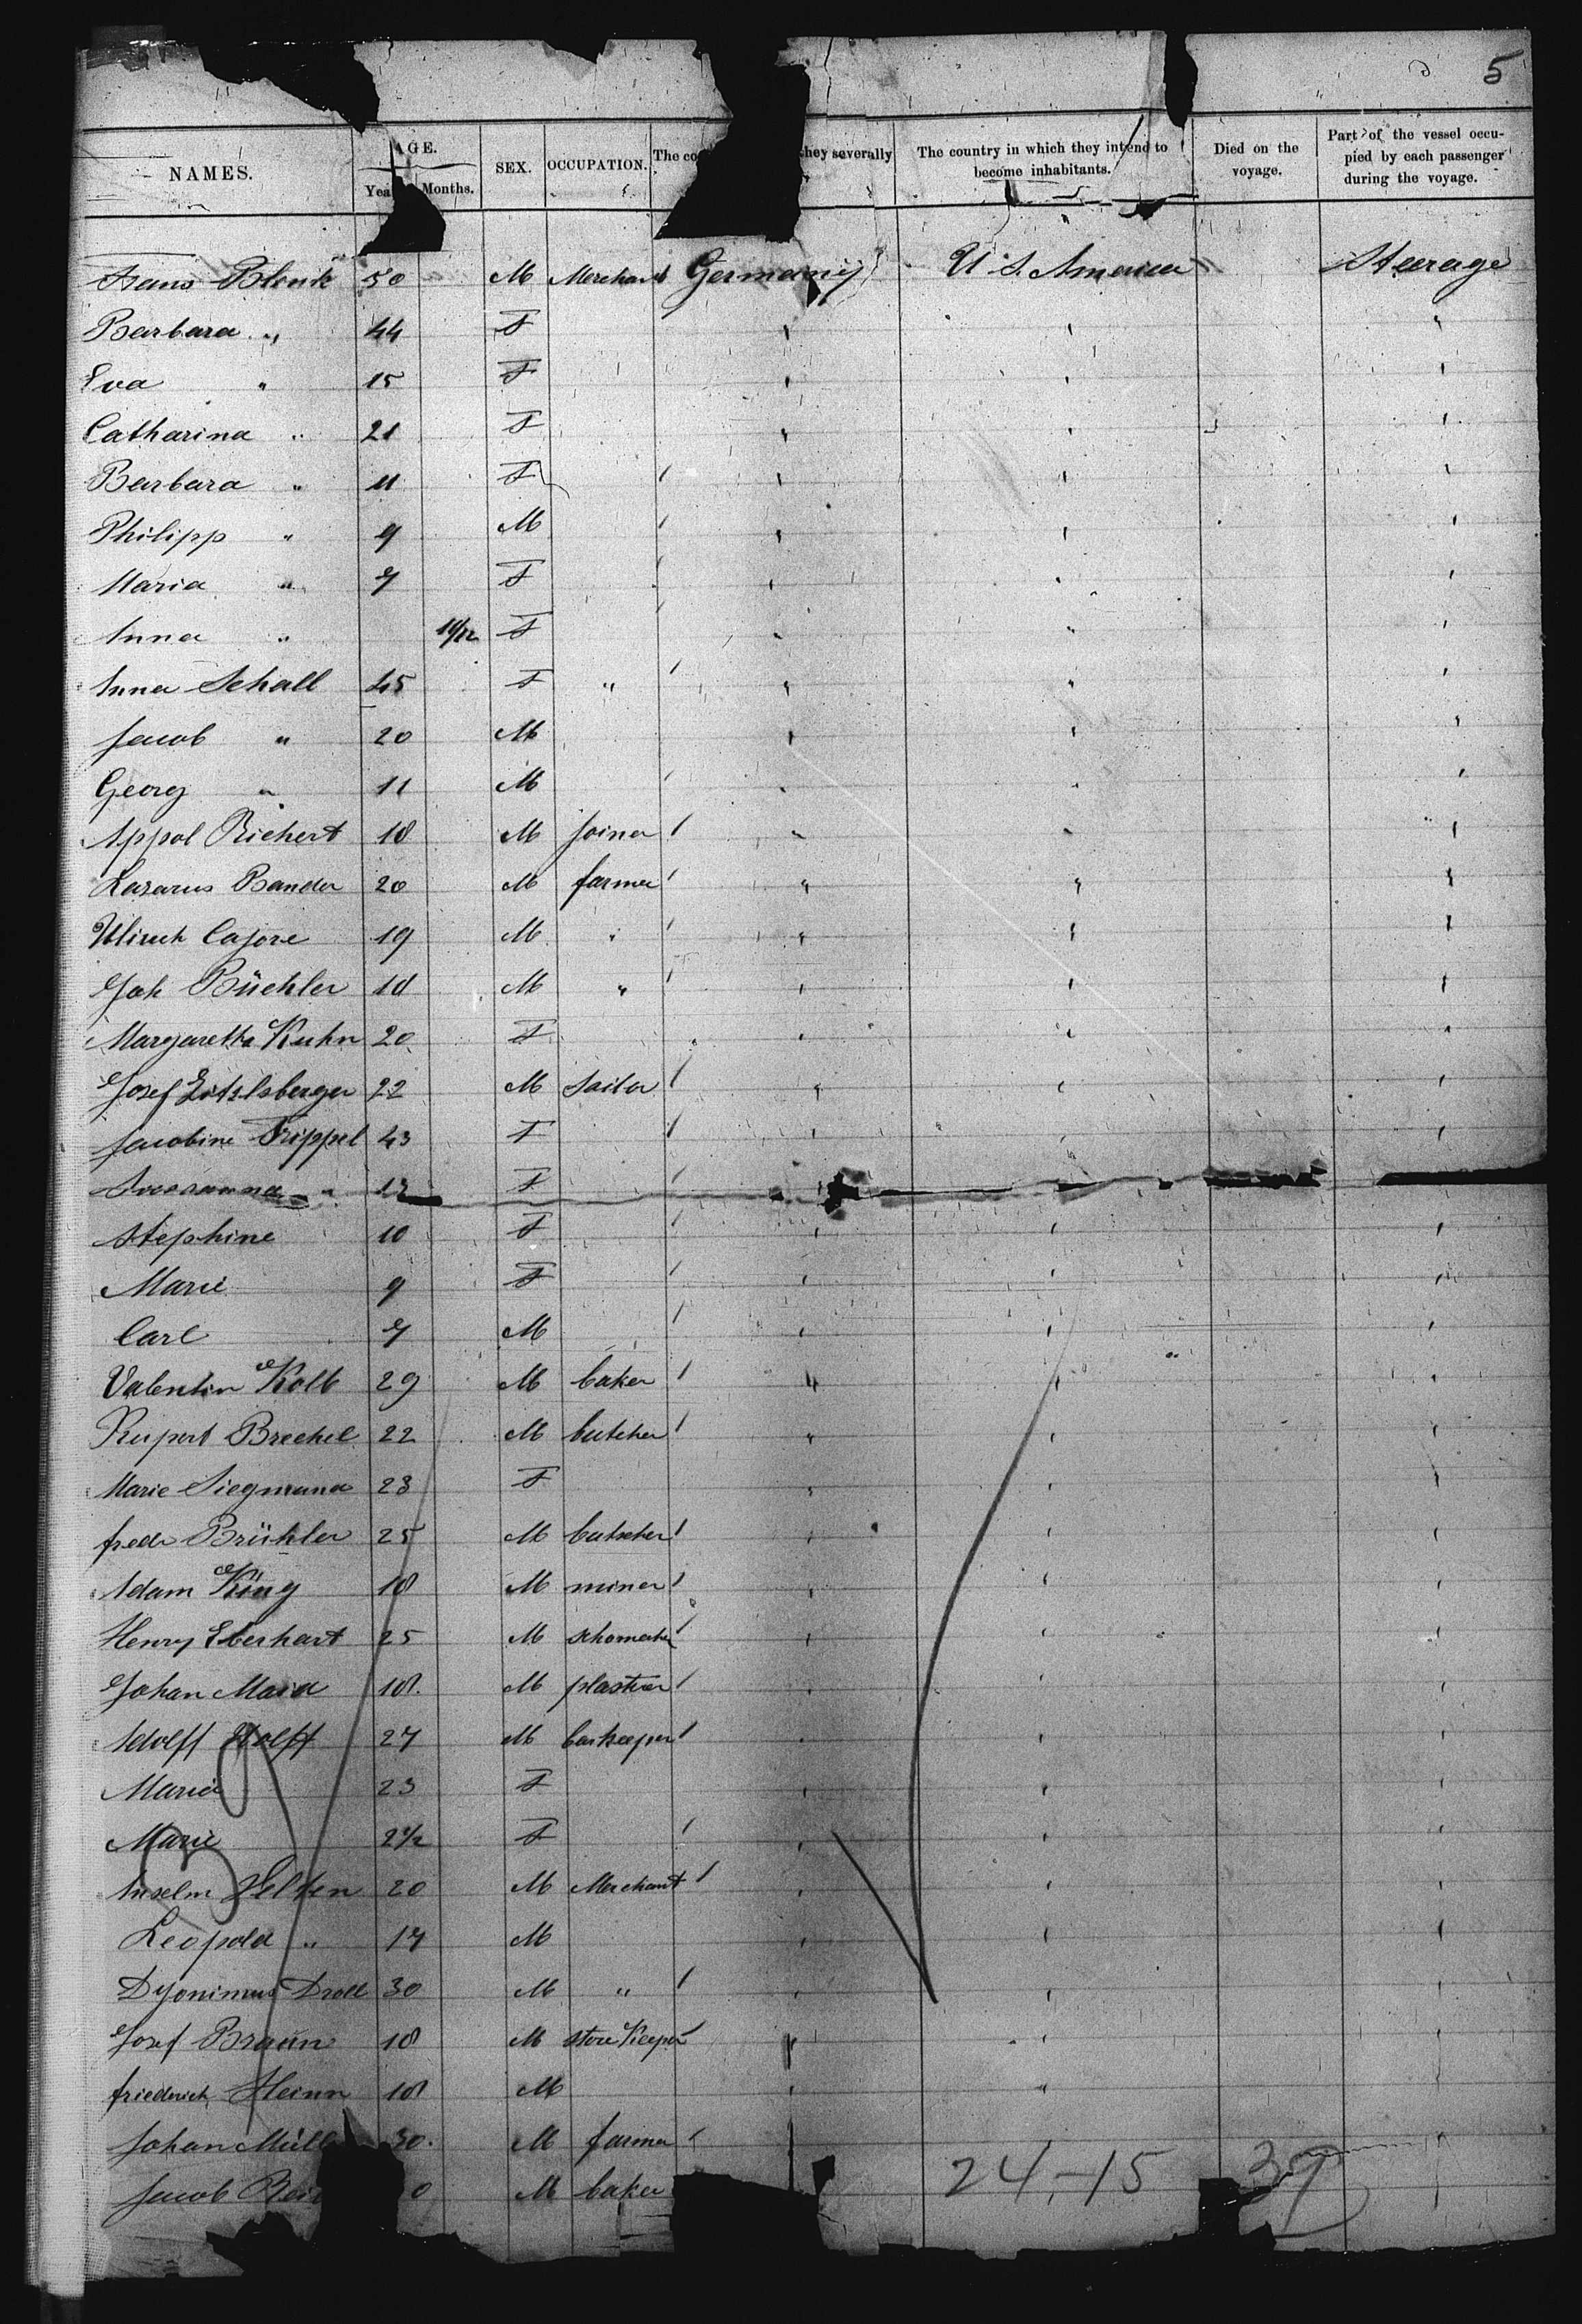 5
NAMES. AGE. SEX. OCCUPATION. The co hey severally The country in which they intend to become inhabitants. Died on the voyage. Part of the vessel occu-pied by each passenger during the voyage.
Yea Months.
Blenk 50 M Merchant Germany U S. America Steerage
Barbara " 44 F " " "
Eva " 15 F " " "
Catharina " 21 F " " "
Barbara " 11 F " " "
Philipp " 9 M " " "
Maria " 7 F " " "
Anna " F " " "
Anna Schall 45 F " " " "
Jacob " 20 M " " "
Georg " 11 M " " "
Appol Richert 18 M joiner " " "
Lazarus Bander 20 M farmer " " "
Ulrich Cajore 19 M " " " "
Joh Büchler 18 M " " " "
Margaretha Kuhn 20 F " " "
Josef 22 M " " "
Jacobine Trippel 43 F " " "
F
Stephine 10 F " " "
Marie 9 F " " "
Carl 7 M " " "
Valentin Kolb 29 M baker " " "
Rupert Brechel 22 M butcher " " "
Marie Siegmund 23 F " "
fredr Brühler 25 M butscher " " "
Adam King 18 M miner " " "
Henry Eberhart 25 M " " "
Johan 18 M " " "
Adolff Wolff 27 M barkeeper " " "
Maria 23 F " " "
Marie 2 1/2 F " " "
Anselm Velten 20 M Merchant " " "
Leopold " 17 M " " "
Droll 30 M " " " "
Josef Braun 18 M store Keeper " " "
friederich Heinn 18 M " " "
Johan Müll 30 M farmer
Jacob 0 M baker
24-15 39